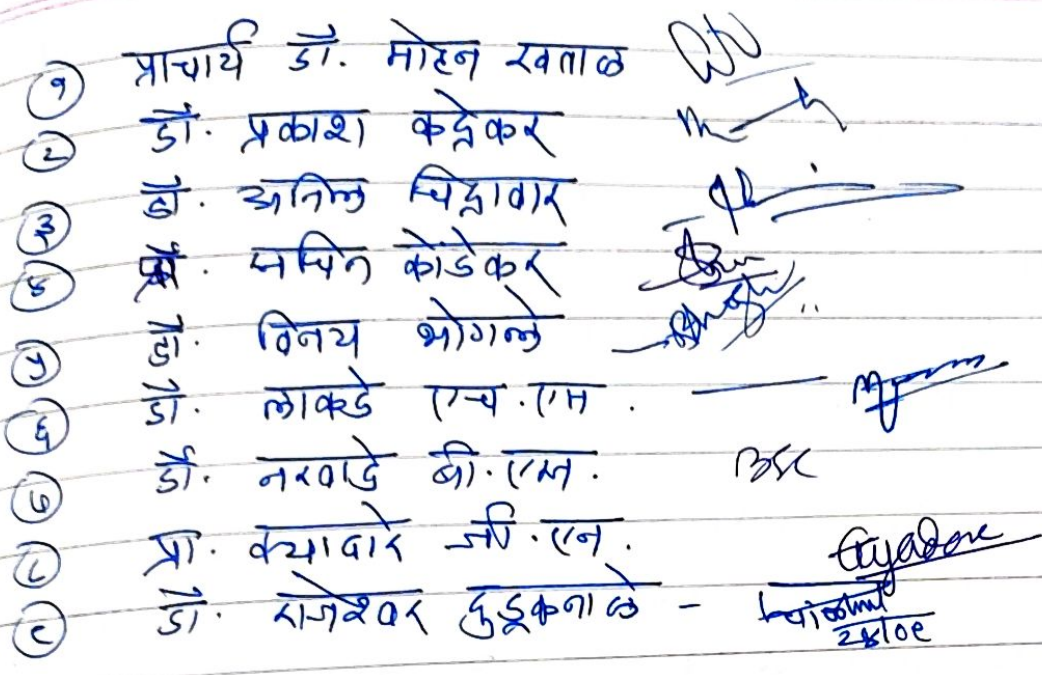 १ प्राचार्य डॉ. मोहन खताळ
२ डॉ. प्रकाश कद्रेकर
३ डॉ. अनिल चिद्रावार
४ प्रा. सचिन कोंडेकर
५ डॉ. विनय भोगले
६ डॉ. लाकडे एच.एम.
७ डॉ. नरवाडे बी.एस. BSC
८ प्रा. क्यादारे जी.एन.
९ डॉ. राजेश्वर दुडूकनाळे -